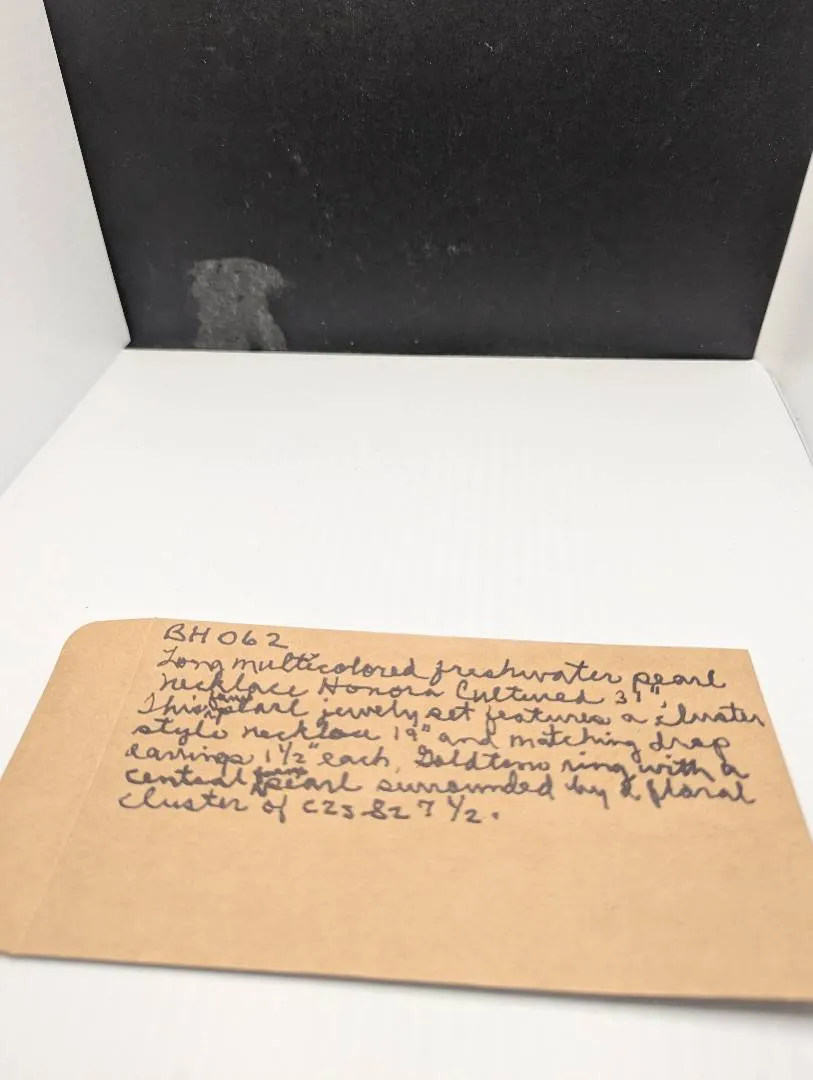 BH 062
Long multicolored freshwater pearl
necklace Honora Cultured 31".
This faux pearl jewelry set features a cluster
style necklace 19" and matching drop
earrings 1 1/2" each. Goldtone ring with a
central faux pearl surrounded by a floral
cluster of CZs sz 7 1/2.